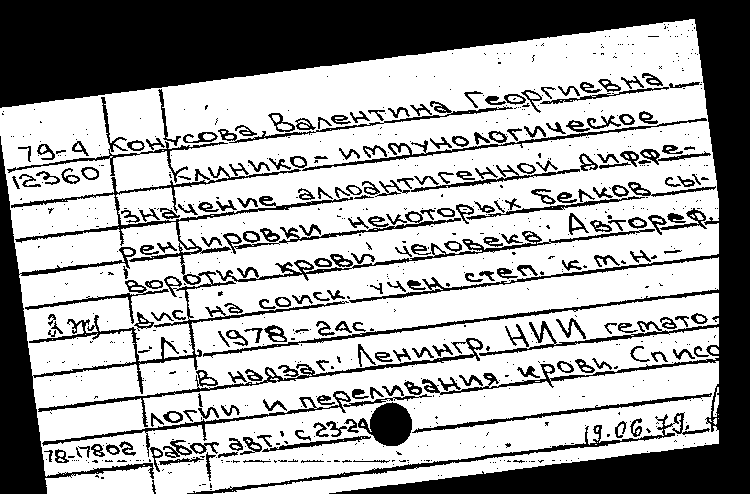 79-4 Конусова, Валентина Георгиевна.
12360 Клинико-иммунологическое
значение аллоантигенной диффе-
ренцировки некоторых белков сы-
воротки крови человека: Автореф.
дис. на соиск. учен. степ. к.м.н. -
- Л., 1978. - 24с.
В надзаг.: Ленингр. НИИ гемато-
логии и переливания крови. Списо
78-17802 работ авт.: с. 23-24
19.06.79.